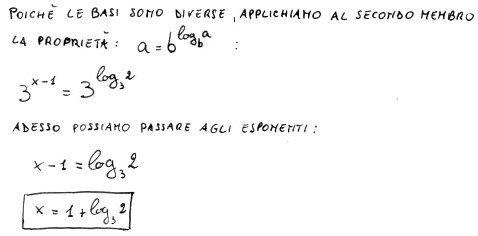 POICHÈ LE BASI SONO DIVERSE, APPLICHIAMO AL SECONDO MEMBRO
LA PROPRIETÀ: a = b^{log_b a} :
3^{x-1} = 3^{log_3 2}
ADESSO POSSIAMO PASSARE AGLI ESPONENTI:
x - 1 = log_3 2
x = 1 + log_3 2